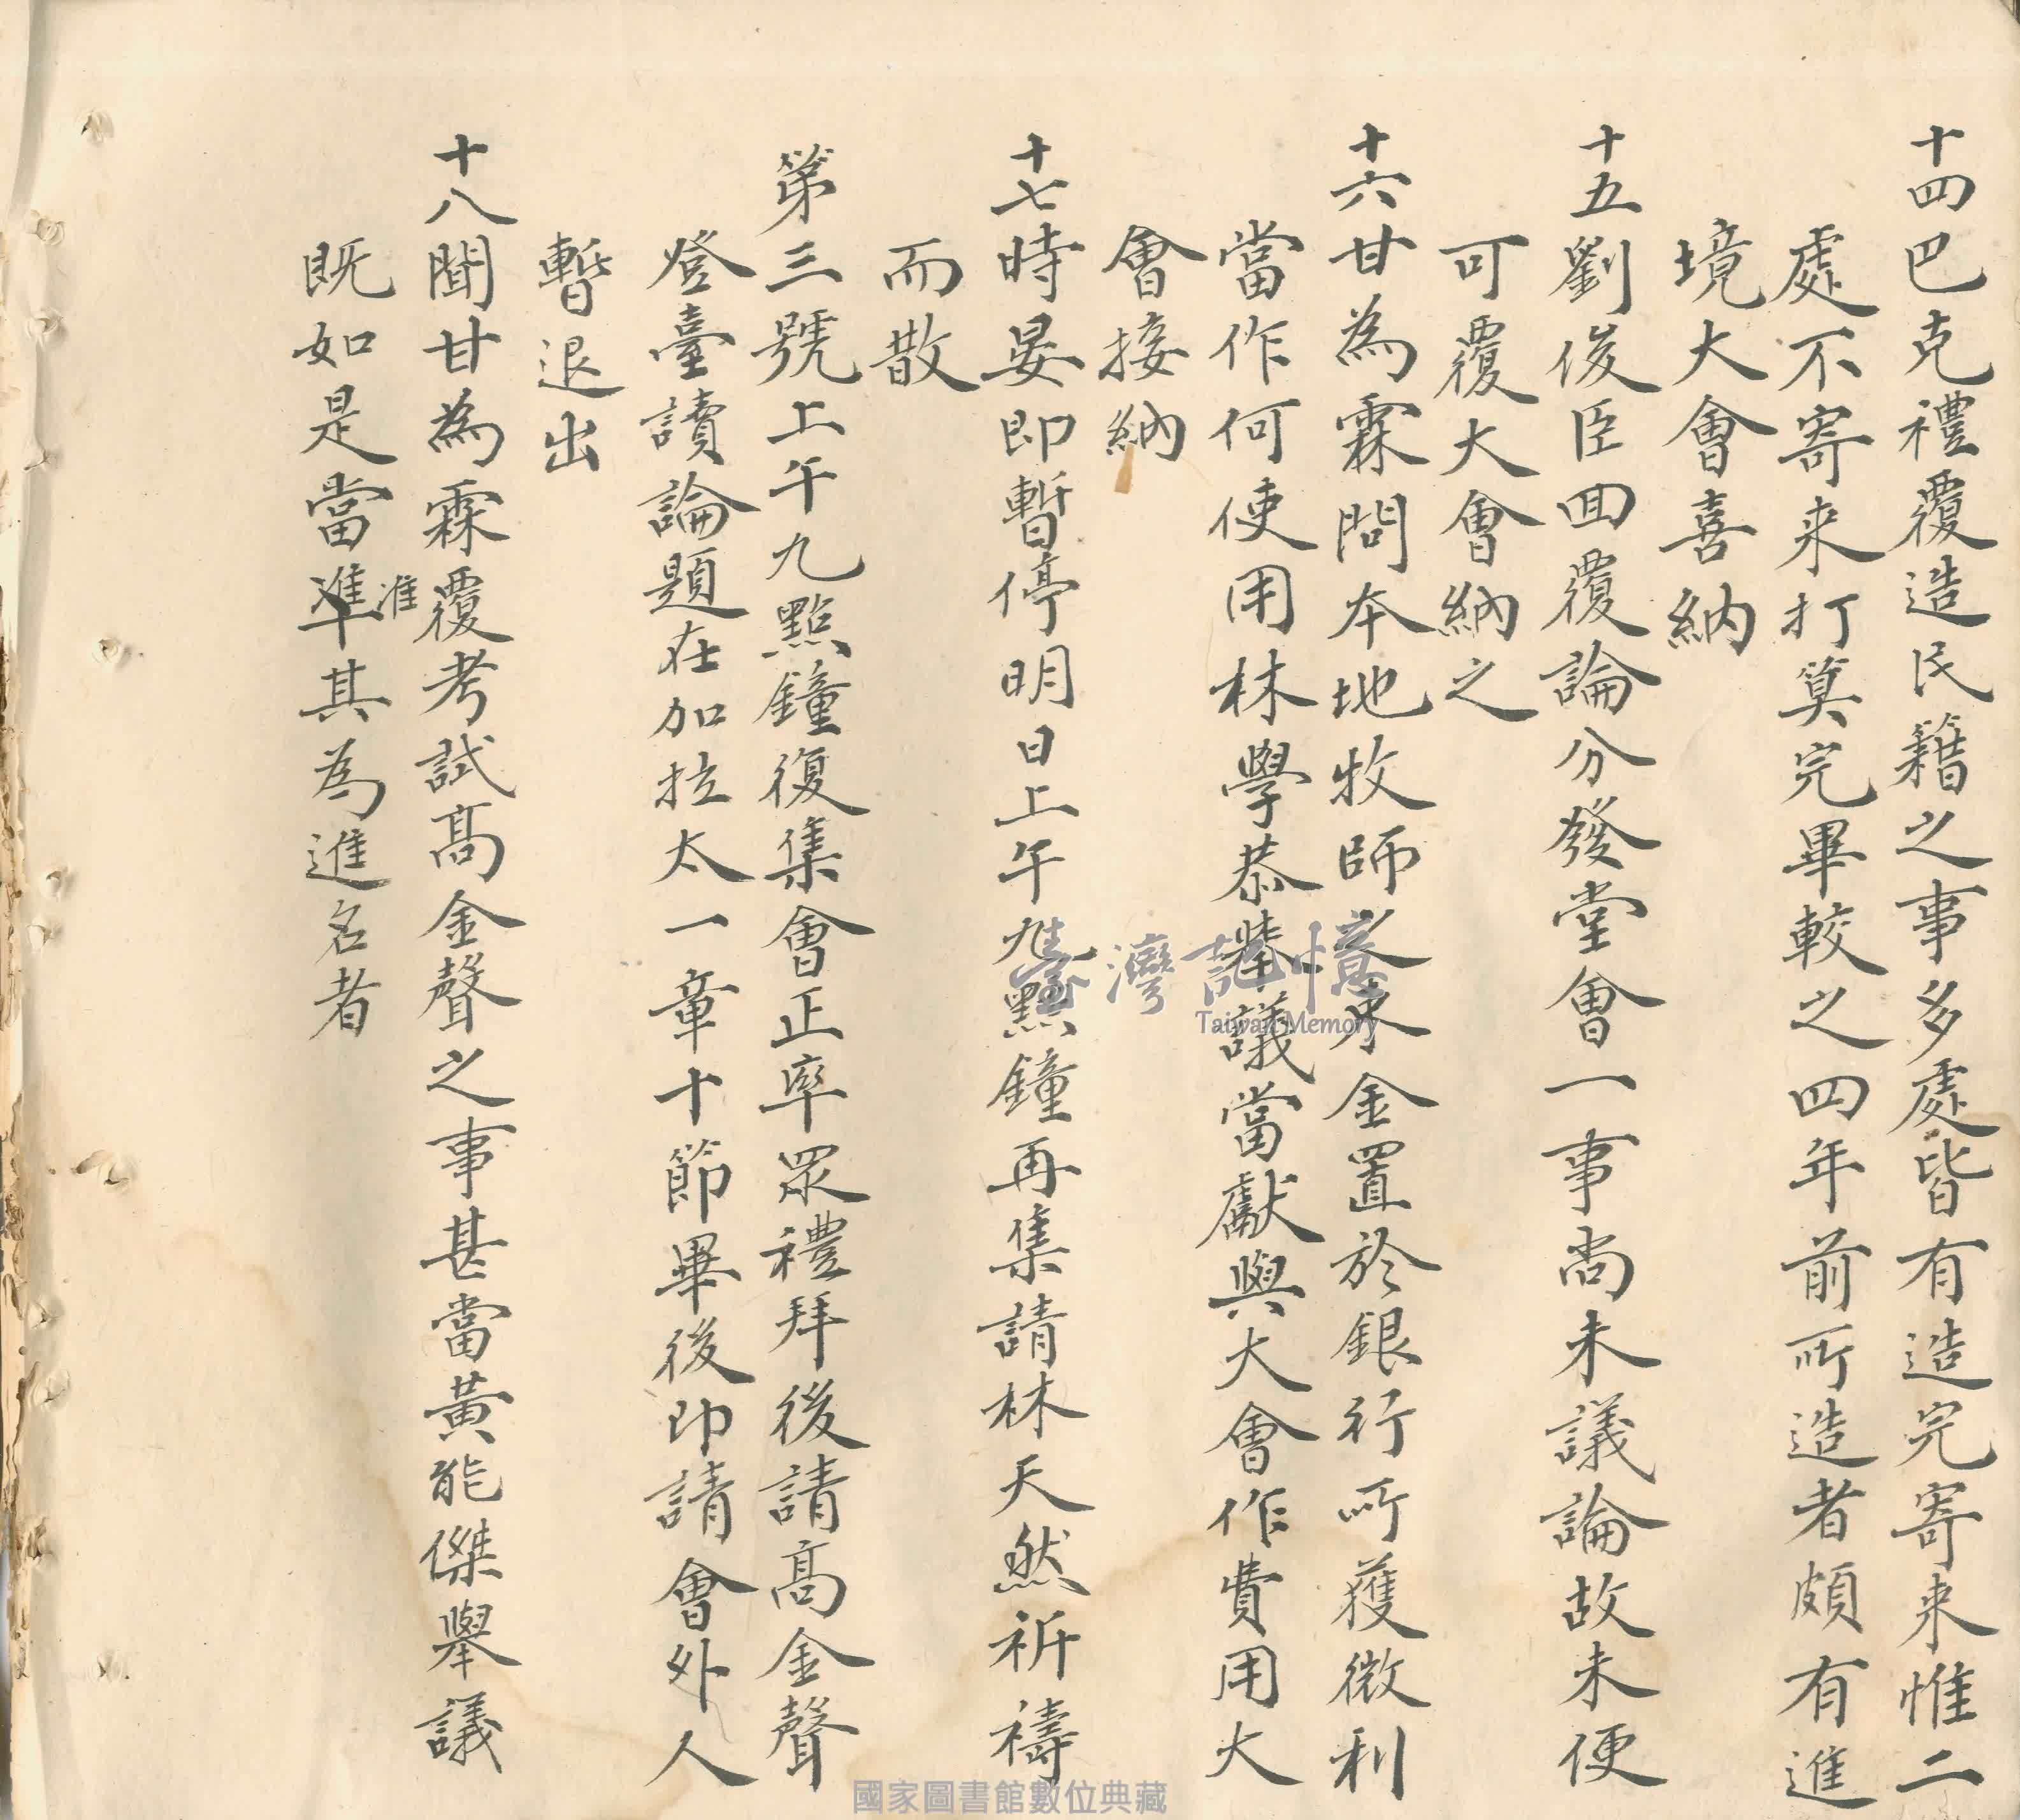 十四巴克禮覆造民籍之事多處皆有造完寄来惟二
處不寄来打算完畢較之四年前所造者頗有進
境大會喜納
十五劉俊臣囬覆論分發堂會一事尚未議論故未便
可覆大會納之
十六甘為霖問本地牧師之來金置於銀行所獲微利
當作何使用林學恭舉議當獻與大會作費用大
會接納
十七時晏即暫停明日上午九點鐘再集請林天然祈禱
而散
第三號上午九點鐘復集會正率眾禮拜後請高金聲
登臺讀論題在加拉太一章十節畢後即請會外人
暫退出
十八聞甘為霖覆考試高金聲之事甚當黃能傑舉議
既如是當準其為進名者
准
臺灣記憶
Taiwan Memory
國家圖書館數位典藏